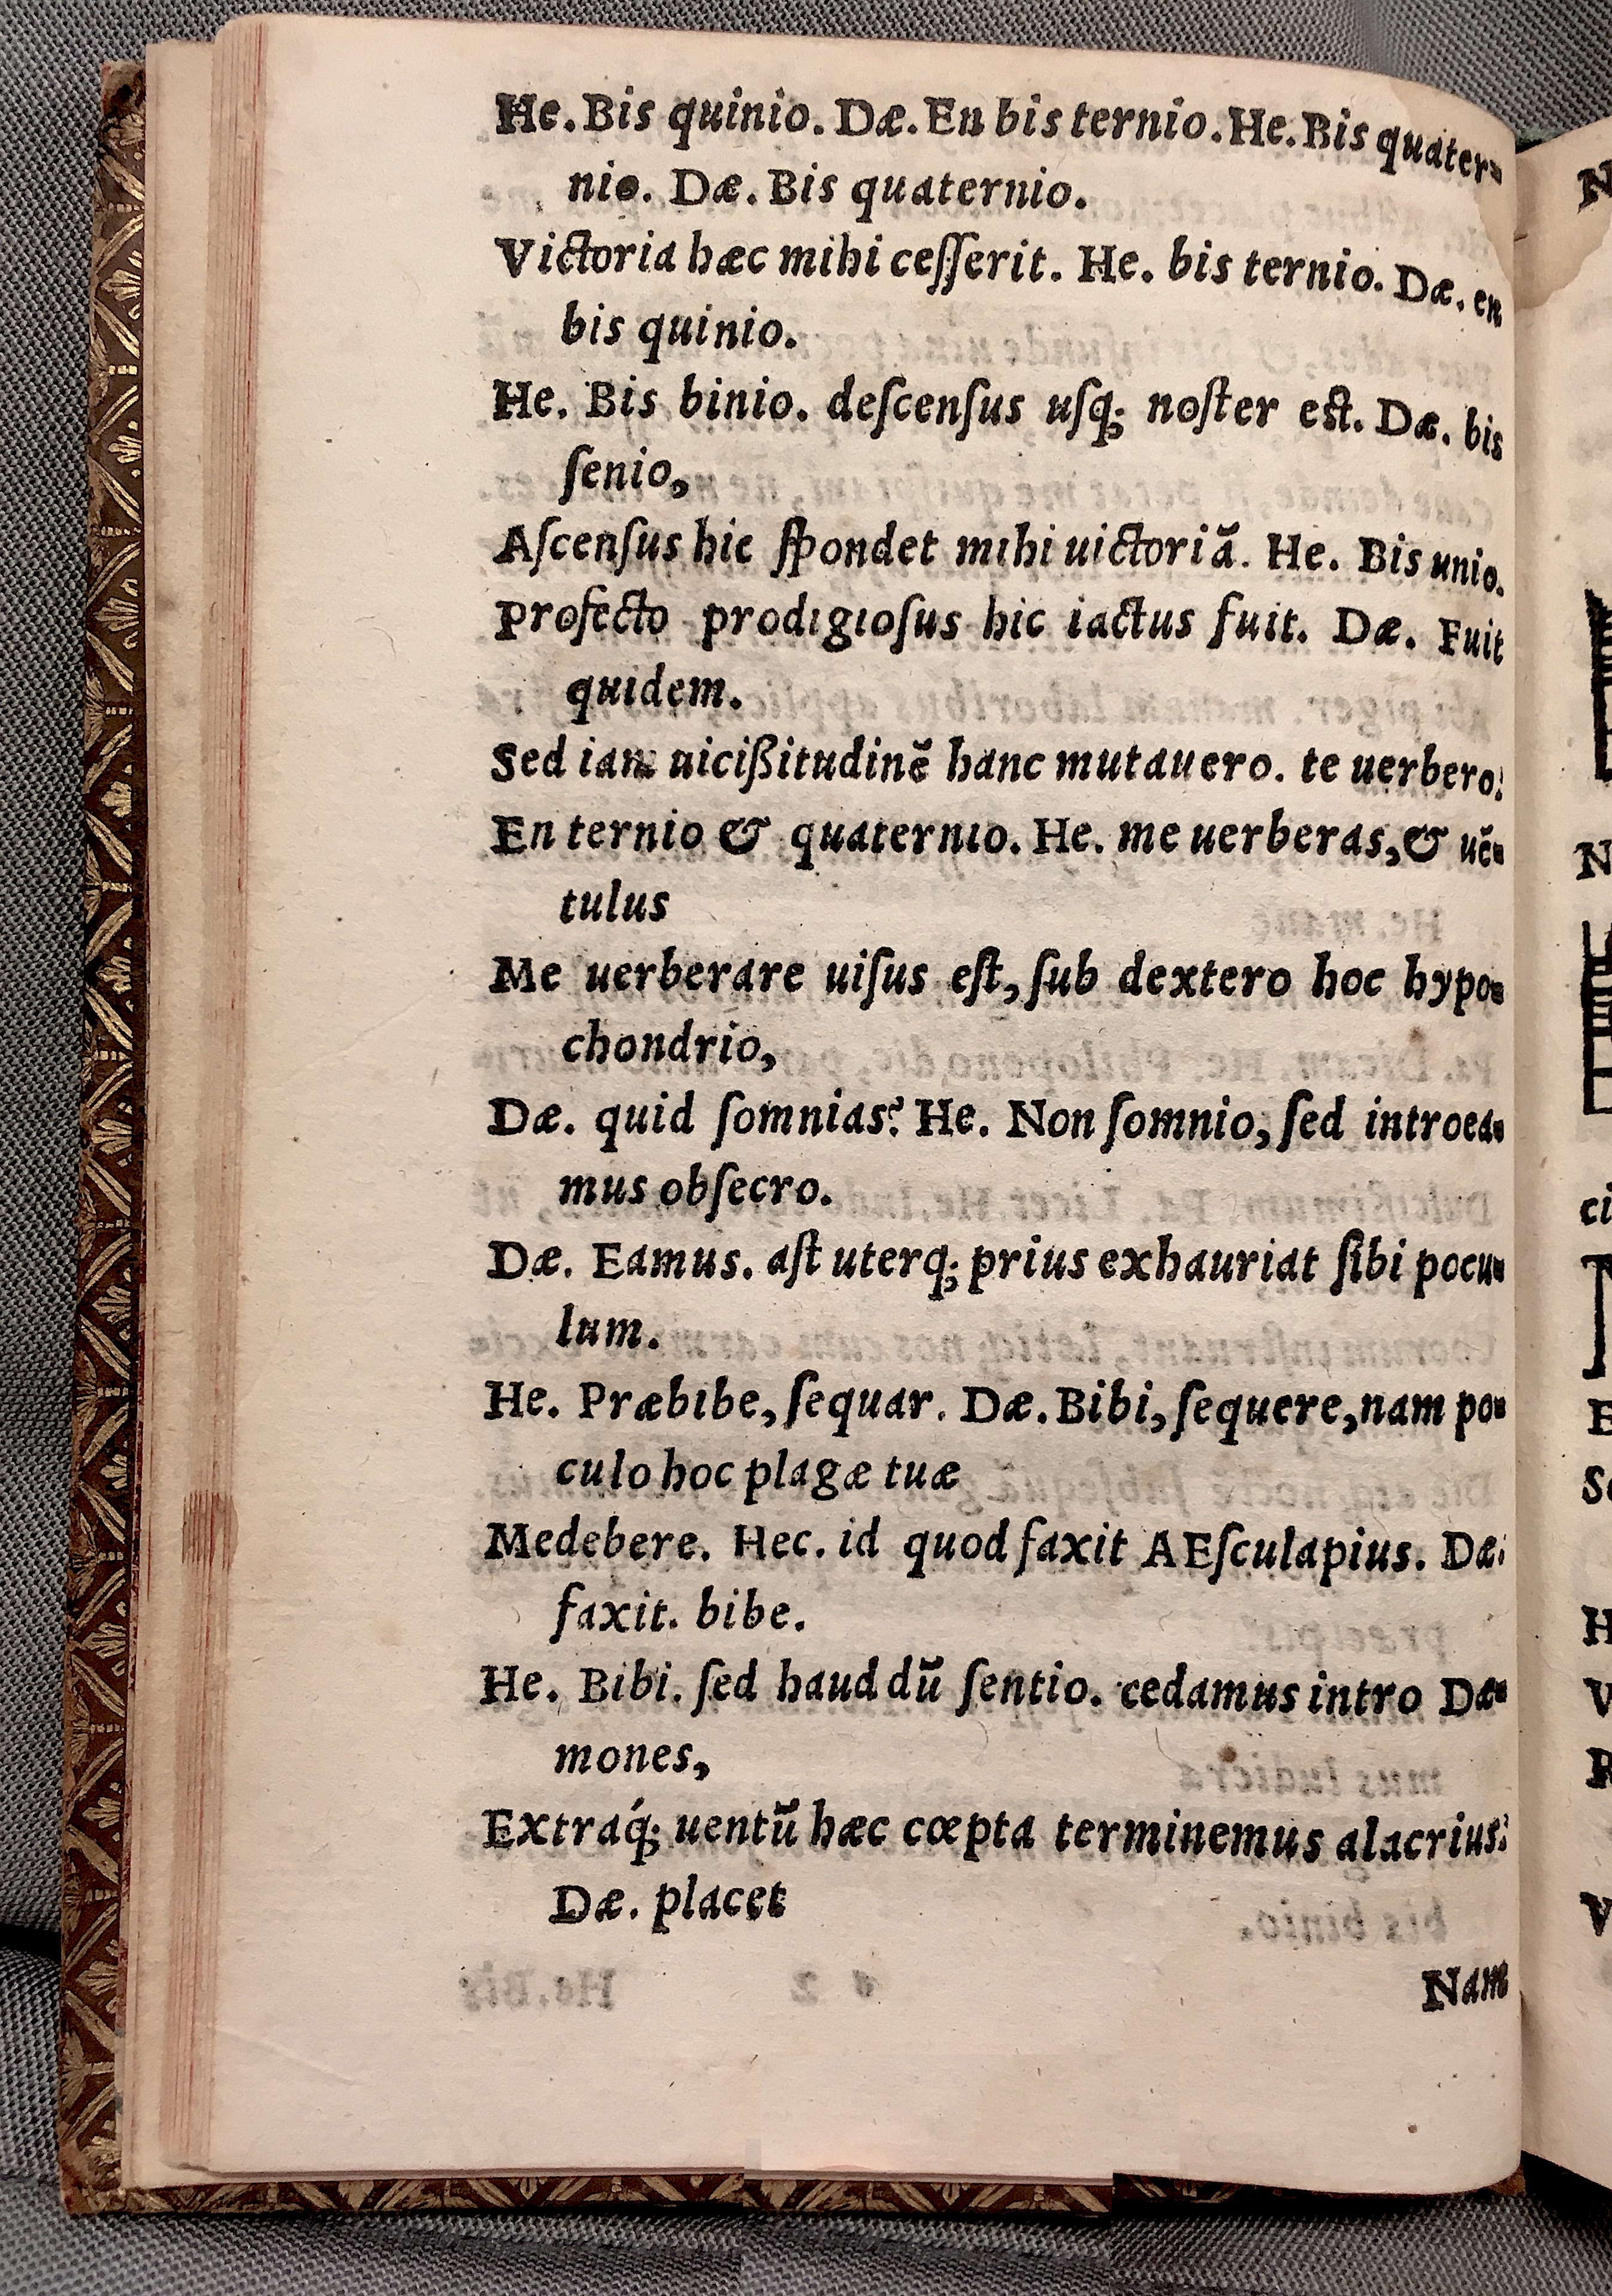 He. Bis quinio. Dæ. En bis ternio. He. Bis quater-
nio. Dæ. Bis quaternio.
Victoria hæc mihi ceſſerit. He. bis ternio. Dæ. en
bis quinio.
He. Bis binio. deſcenſus uſq; noſter eſt. Dæ. bis
ſenio,
Aſcenſus hic ſpondet mihi uictoriã. He. Bis unio.
Profecto prodigioſus hic iactus fuit. Dæ. Fuit
quidem.
Sed iam uicißitudinẽ hanc mutauero. te uerbero:
En ternio & quaternio. He. me uerberas, & uẽ-
tulus
Me uerberare uiſus eſt, ſub dextero hoc hypo-
chondrio,
Dæ. quid ſomnias? He. Non ſomnio, ſed introea-
mus obſecro.
Dæ. Eamus. aſt uterq; prius exhauriat ſibi pocu-
lum.
He. Præbibe, ſequar. Dæ. Bibi, ſequere, nam po-
culo hoc plagæ tuæ
Medebere. Hec. id quod faxit AEſculapius. Dæ.
faxit. bibe.
He. Bibi. ſed haud dũ ſentio. cedamus intro Dæ-
mones,
Extraq́; uentũ hæc cœpta terminemus alacrius:
Dæ. placet
Nam
N
N
ci
E
H
V
R
V